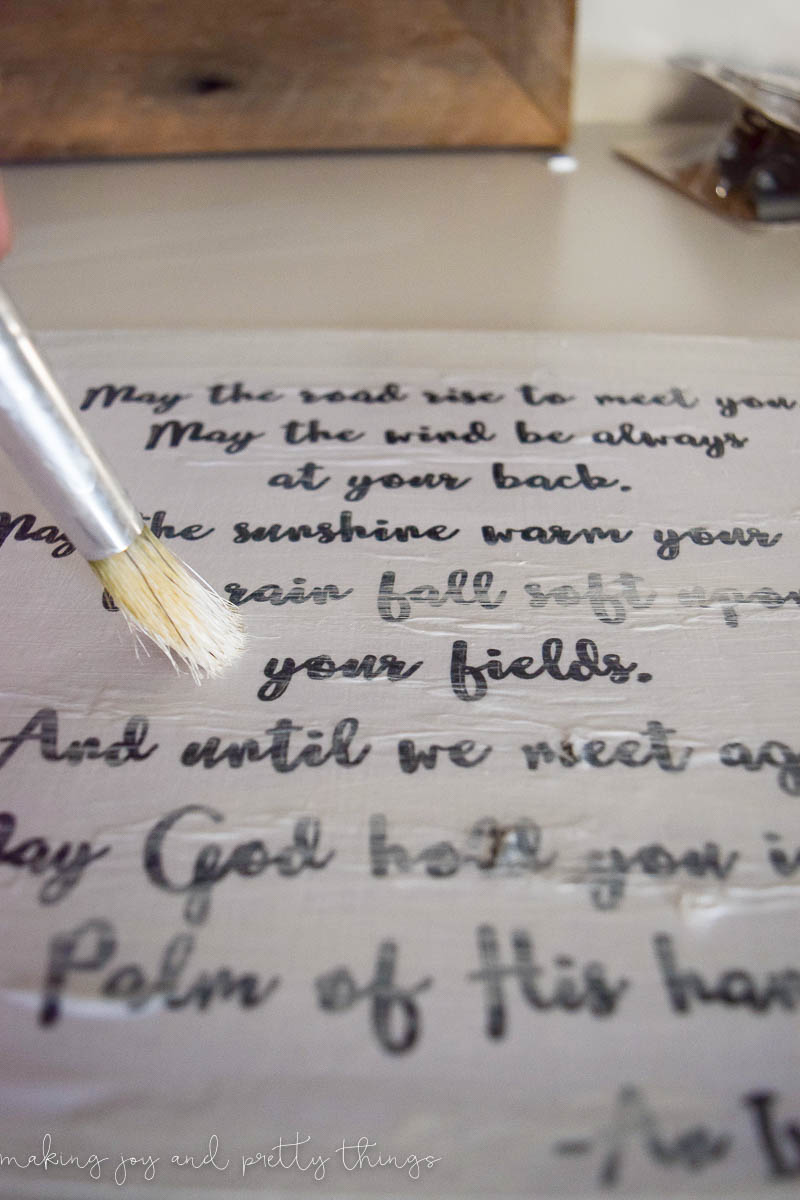 May the road rise to meet you
May the wind be always
at your back.
May the sunshine warm your
rain fall soft upon
your fields.
And until we meet ag
May God hold you i
Palm of His han
-An Ir
making joy and pretty things